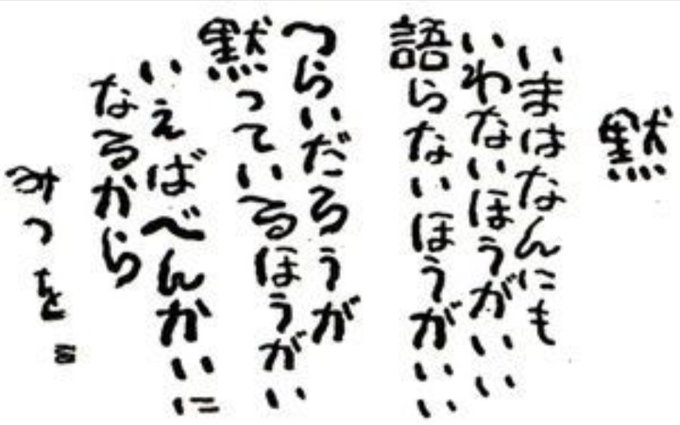 黙
いまはなんにも
いわないほうがいい
語らないほうがいい
つらいだろうが
黙っているほうがい
いえばべんかいに
なるから
みつを